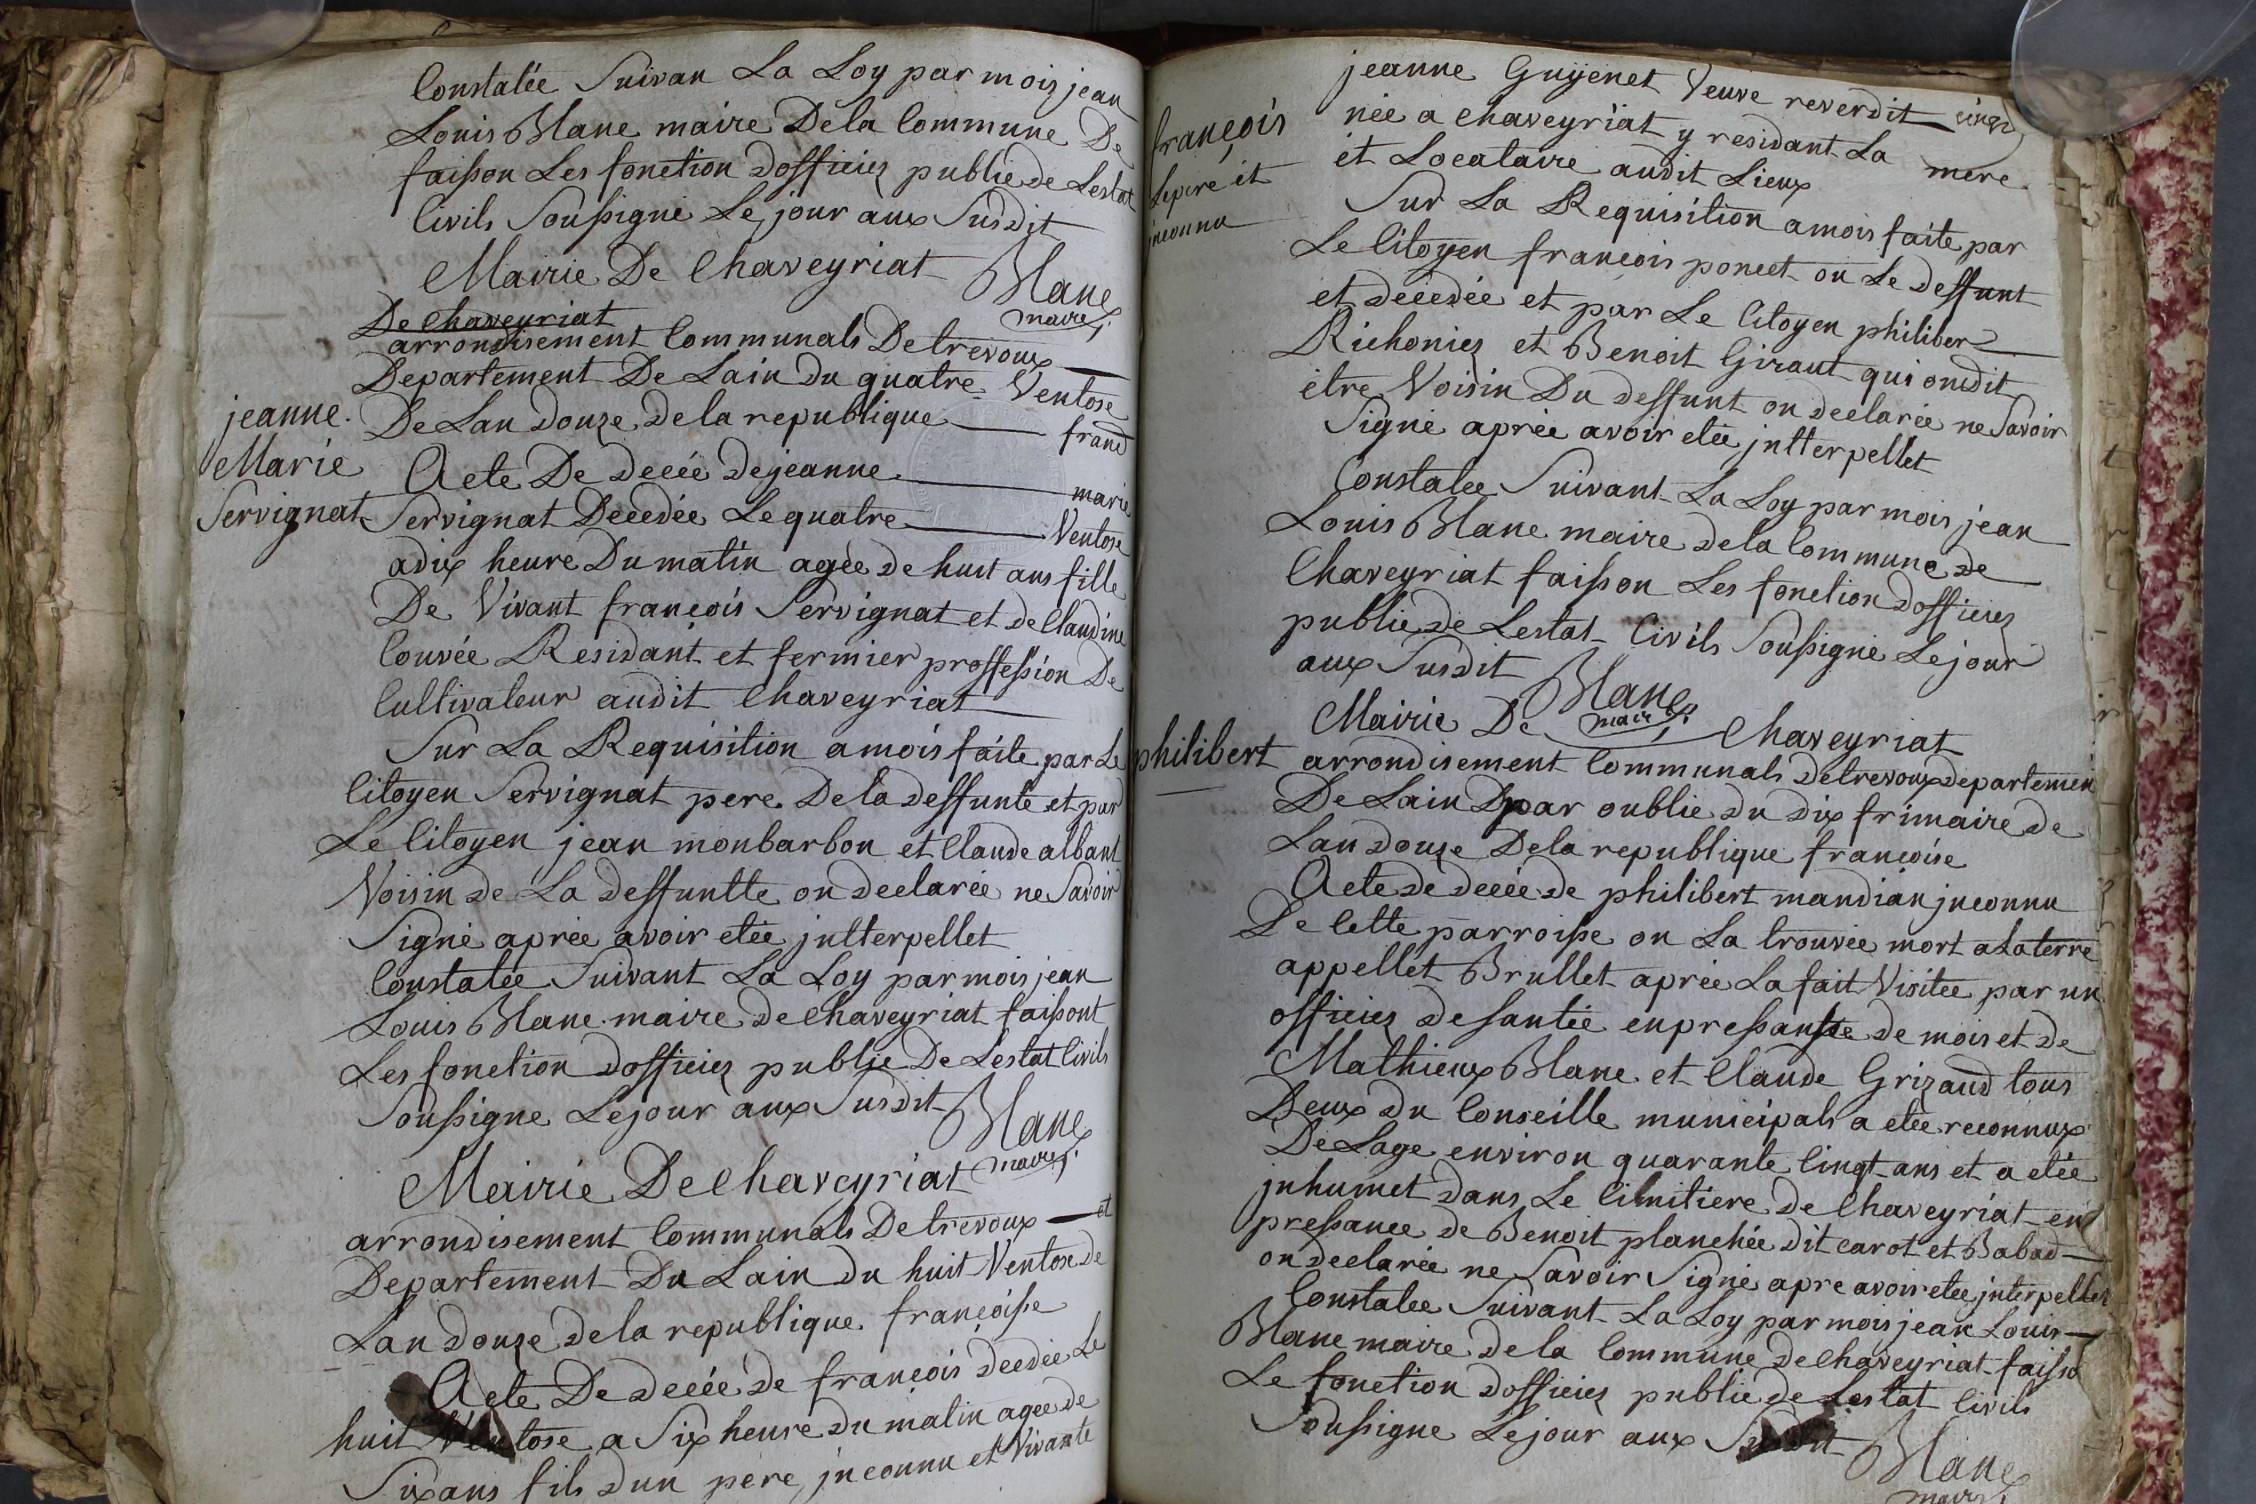 Constatée Suivan La Loy par mois jean
Louis Blanc maire De la Commune De
faisson Les fonction dofficier public de Lestat
Civils Soussigné Le jour aux Susdit
Mairie De Chaveyriat
Blanc
maire
De Chaveyriat
arrondisement Communals De trevoux
Departement De Lain du quatre Ventose
De Lan douze de la republique franc
jeanne
Marie
Servignat
Acte De deceé de jeanne marie
Servignat Decedée Le quatre Ventose
a dix heure Du matin ageé de huit ans fille
De Vivant francois Servignat et de Claudine
Couvée Residant et fermier proffession De
Cultivateur audit Chaveyriat
Sur La Requisition a mois faite par Le
Citoyen Servignat pere De la deffunte et par
Le Citoyen jean monbarbon et Claude albant
Voisin de La deffuntte on declarée ne Savoir
Signé aprée avoir etée jntterpellet
Constatée Suivant La Loy par mois jean
Louis Blanc maire de Chaveyriat faissont
Les fonction dofficier public De Lestat Civils
Soussigne Le jour aux Susdit
Blanc
maire
Mairie De Chaveyriat
arrondisement Communals De trevoux et
Departement Du Lain du huit Ventose de
Lan douze de la republique françoisse
Acte De deceé de francois decedée Le
huit Ventose a Six heure du matin agee de
Six ans fils dun pere jnconnu et Vivante
françois
Le pere et
jnconnu
jeanne Guyenet Veuve reverdit
née a Chaveyriat y residant La mere
et Locataire audit Lieux
Sur La Requisition a mois faite par
Le Citoyen francois poncet ou Le deffunt
et decedée et par Le Citoyen philiber
Richonier et Benoit Giraut qui on dit
être Voisin Du deffunt on declarée ne Savoir
Signé aprée avoir etée jntterpellet
Constatee Suivant La Loy par mois jean
Louis Blanc maire de la Commune de
Chaveyriat faisson Les fonction dofficier
public de Lestat Civils Soussigné Le jour
aux Susdit
Blanc
maire
Mairie De Chaveyriat
philibert
arrondisement Communals de trevoux departemen
De Lain par oublie du dix frimaire de
Lan douze De la republique francoise
Acte de deceé de philibert mandian jnconnu
De Cette parroisse on La trouvée mort a La terre
appellet Brullet aprée La fait Visitee par un
officier de santée en pressantce de mois et de
Mathieux Blanc et Claude Grizaud tous
Deux du Conseille municipals a etée reconnux
De Lage environ quarante Cinqt ans et a etée
jnhumet dans Le Cimitiere de Chaveyriat en
pressance de Benoit planchée dit carot et Babad
on declarée ne Savoir Signé apre avoir etée jnterpellet
Constatee Suivant La Loy par mois jean Louis
Blanc maire de la Commune de Chaveyriat faisso
Le fonction dofficier public de Lestat Civils
Soussigne Le jour aux Susdit
Blanc
maire